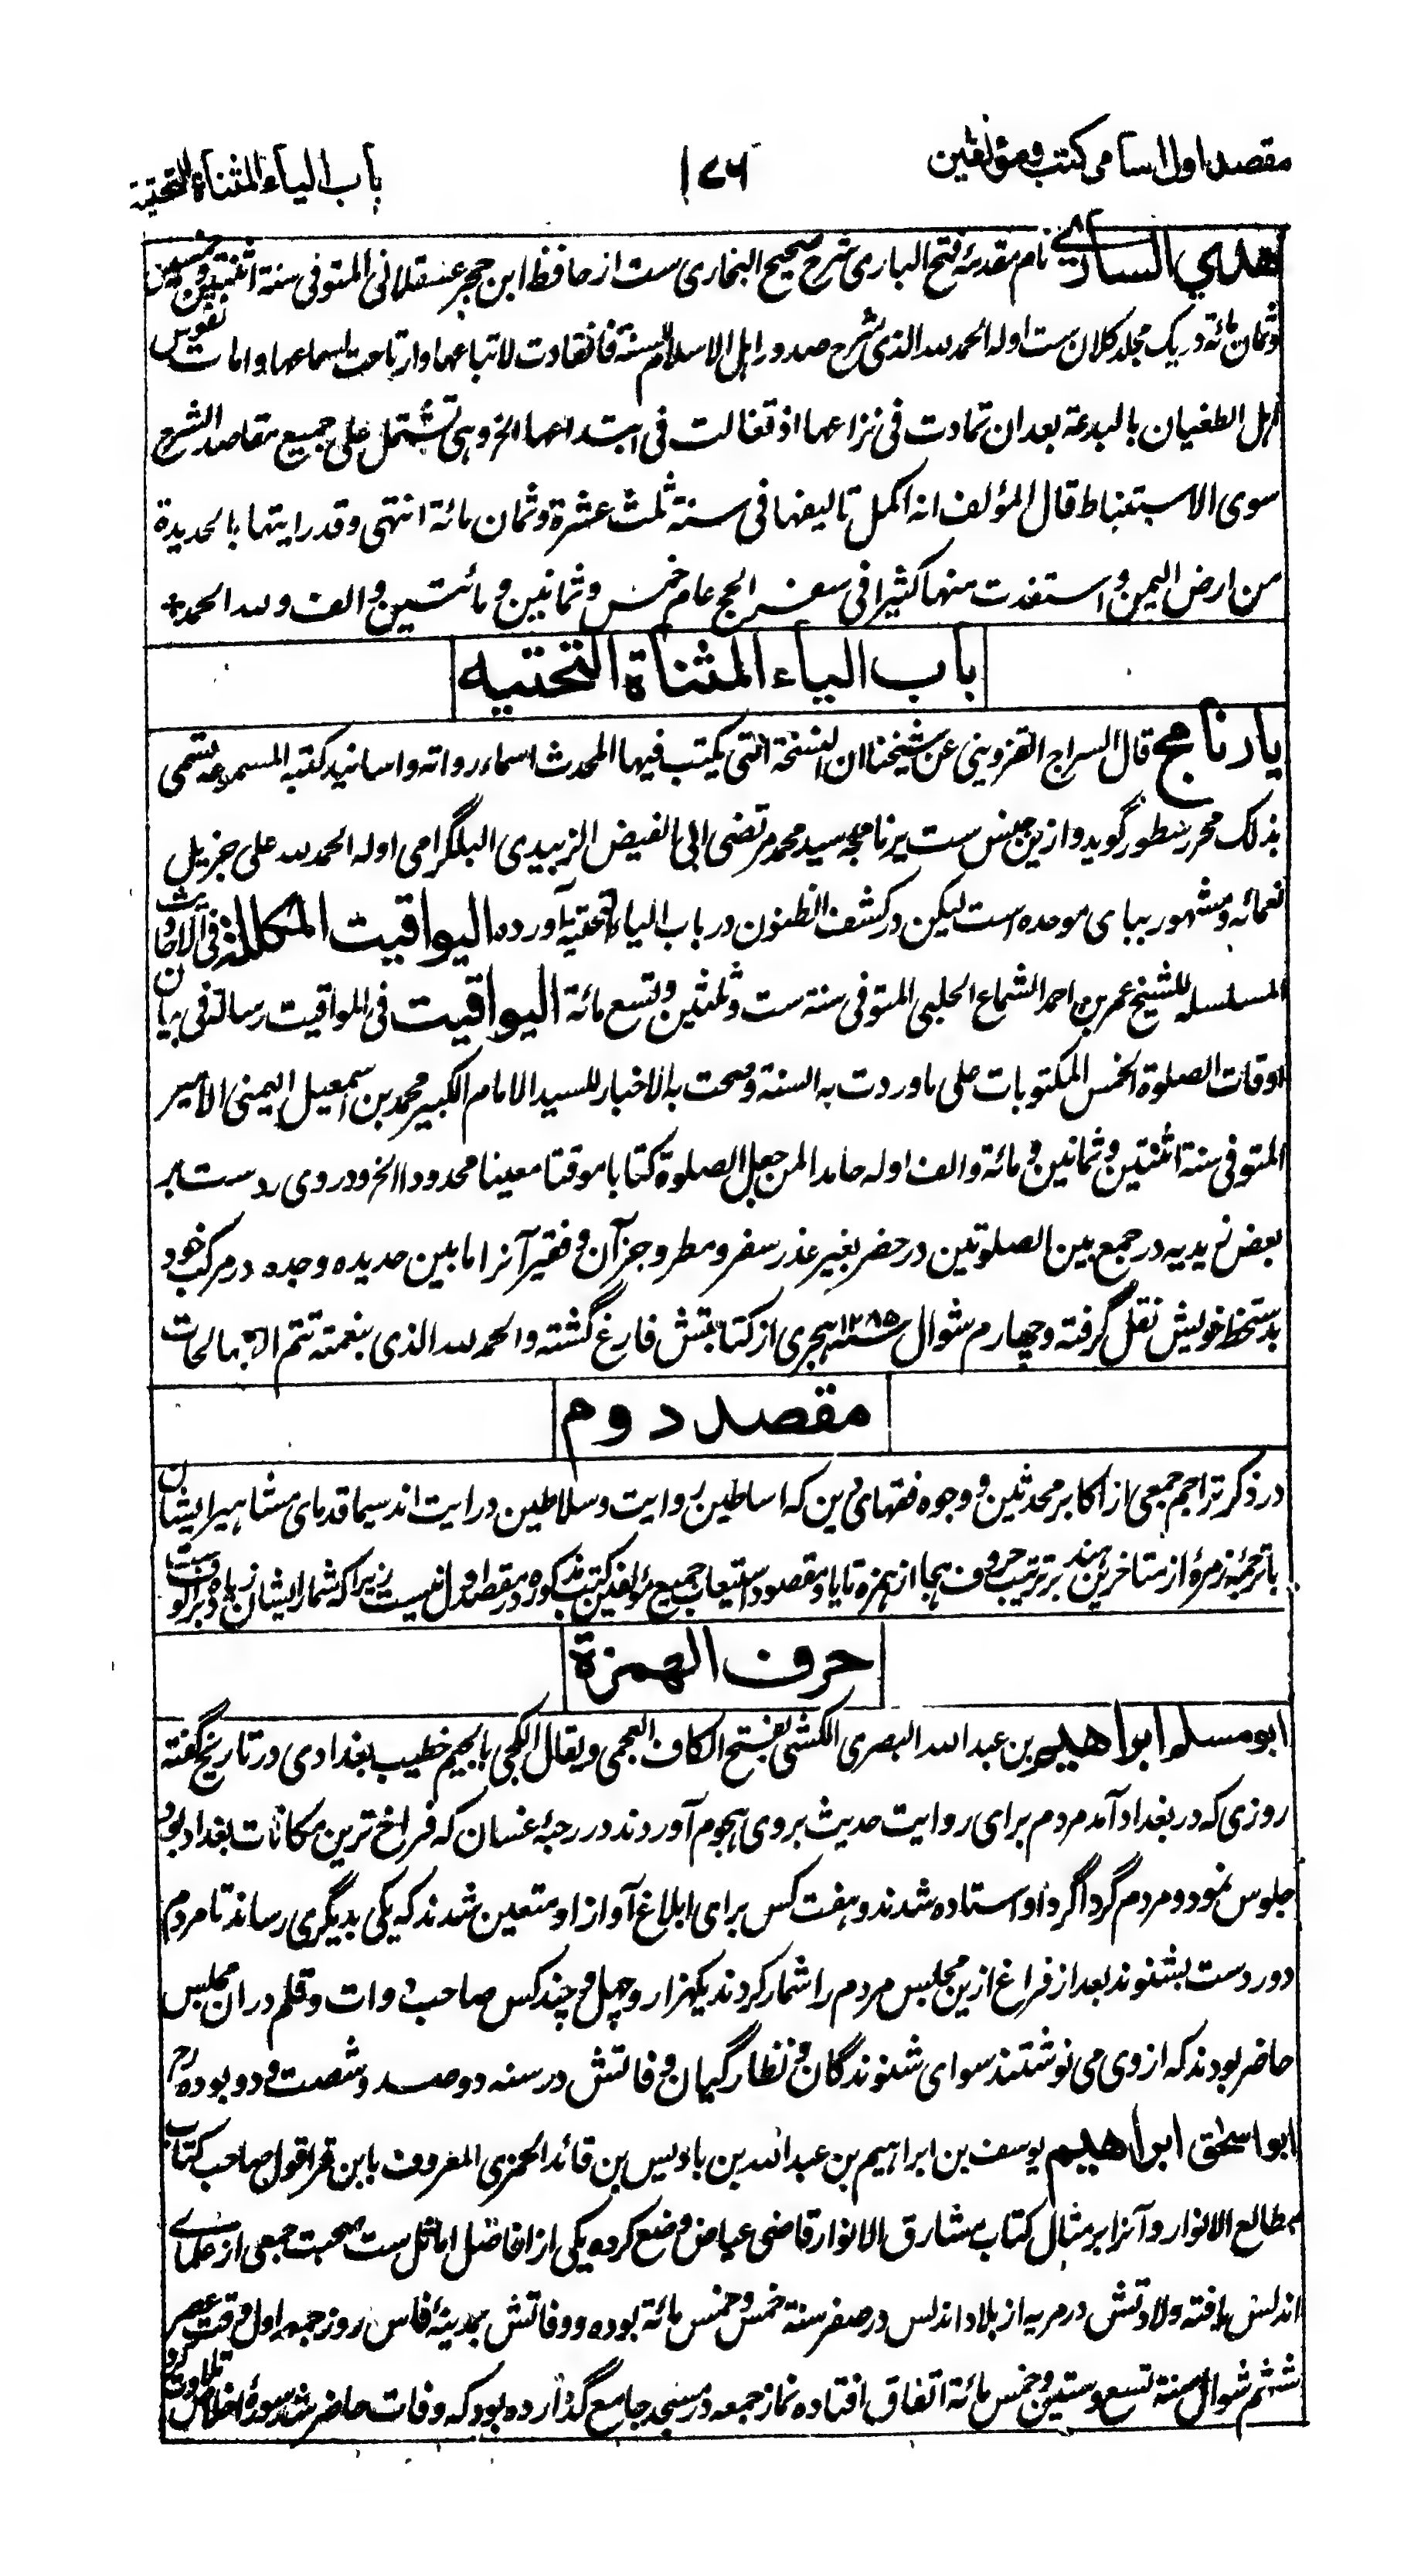 مقصد اول اسامی کتب و مؤلفین
۱۷۶
باب الیاء المثناة التحتیة
هدي الساري نام مقدمهٔ فتح الباری شرح صحیح البخاری ست از حافظ ابن حجر عسقلانی المتوفی سنة اثنتین و خمسین
وثمان مائة در یک مجلد کلان ست اوله الحمد لله الذی شرح صدور اهل الاسلام للسنة فانقادت لاتباعها وارتاحت لسماعها وامات نفوس
اهل الطغیان بالبدعة بعد ان تمادت فی نزاعها اذ تغالت فی ابتداعها الخ وهی تشتمل علی جمیع مقاصد الشرح
سوی الاستنباط قال المؤلف انه اکمل تالیفها فی سنة ثلث عشرة وثمان مائة انتهی وقد رایتها بالحدیدة
من ارض الیمن واستفدت منها کثیرا فی سفر الحج عام خمس وثمانین ومائتین والف ولله الحمد +
باب الیاء المثناة التحتیه
یادنامج قال السراج القزوینی عن شیخنا ان النسخة التی یکتب فیها المحدث اسماء رواته واسانید کتبه المسموعه تسمی
بذلک محرر سطور گوید و ازین جنس ست برنامجه سید محمد مرتضی ابی الفیض الزبیدی البلگرامی اوله الحمد لله علی جزیل
نعمائه و مشهور ببای موحده است لیکن در کشف الظنون در باب الیاء التحتیه آورده الیواقیت المکللة فی الاحادیث
المسلسله للشیخ عمر بن احمد الشماع الحلبی المتوفی سنة ست وثلثین وتسع مائة الیواقیت فی المواقیت رسالة فی بیان
اوقات الصلوة الخمس المکتوبات علی ما وردت به السنة وصحت به الاخبار للسید الامام الکبیر محمد بن اسمعیل الیمنی الامیر
المتوفی سنة اثنتین وثمانین ومائة والف اوله حامدا لمن جعل الصلوة کتابا موقتا معینا محدودا الخ و در وی رد ست بر
بعض زیدیه در جمع بین الصلوتین در حضر بغیر عذر سفر و مطر و جز آن و فقیر آنرا مابین حدیده و جده در مرکب خود
بدستخط خویش نقل گرفته و چهارم شوال سنه ۱۲۸۵ هجری از کتابتش فارغ گشته والحمد لله الذی بنعمته تتم الصالحات
مقصد دوم
در ذکر تراجم جمعی از اکابر محدثین و وجوه فقهای دین که اساطین روایت و سلاطین درایت اند سیما قدمای مشاهیر ایشان
با ترجمهٔ زمرهٔ از متاخرین هند بر ترتیب حروف هجا از همزه تا یا و مقصود استیعاب جمیع مؤلفین کتب مذکوره در مقصد اول نیست زیرا که شمار ایشان زیاده بر الوف ست
حرف الهمزة
ابو مسلم ابراهیم بن عبد الله البصری الکشی بفتح الکاف العجمی و یقال الکجی بالجیم خطیب بغدادی در تاریخ گفته
روزی که در بغداد آمد مردم برای روایت حدیث بر وی هجوم آوردند در رحبهٔ غسان که فراخ ترین مکانات بغداد بود
جلوس نمود و مردم گرداگرد او استاده شدند و هفت کس برای ابلاغ آواز او متعین شدند که یکی بدیگری رساند تا مردم
دوردست بشنوند بعد از فراغ ازین مجلس مردم را شمار کردند یکهزار و چهل و چند کس صاحب دوات و قلم دران مجلس
حاضر بودند که از وی می نوشتند سوای شنوندگان و نظارگیان و فاتش در سنه دو صد و شصت و دو بوده رح
ابو اسحق ابراهیم یوسف بن ابراهیم بن عبد الله بن بادیس بن قائد الحمزی المعروف بابن قرقول صاحب کتاب
مطالع الانوار و آنرا بر مثال کتاب مشارق الانوار قاضی عیاض وضع کرده یکی از افاضل اماثل ست صحبت جمعی از علمای
اندلس یافته ولادتش در مریه از بلاد اندلس در صفر سنة خمس وخمس مائة بوده و وفاتش بمدینهٔ فاس روز جمعه اول وقت عصر
ششم شوال سنة تسع وستین وخمس مائة اتفاق افتاده نماز جمعه در مسجد جامع گذارده بود که وفات حاضر شد سورهٔ اخلاص تلاوت کرد